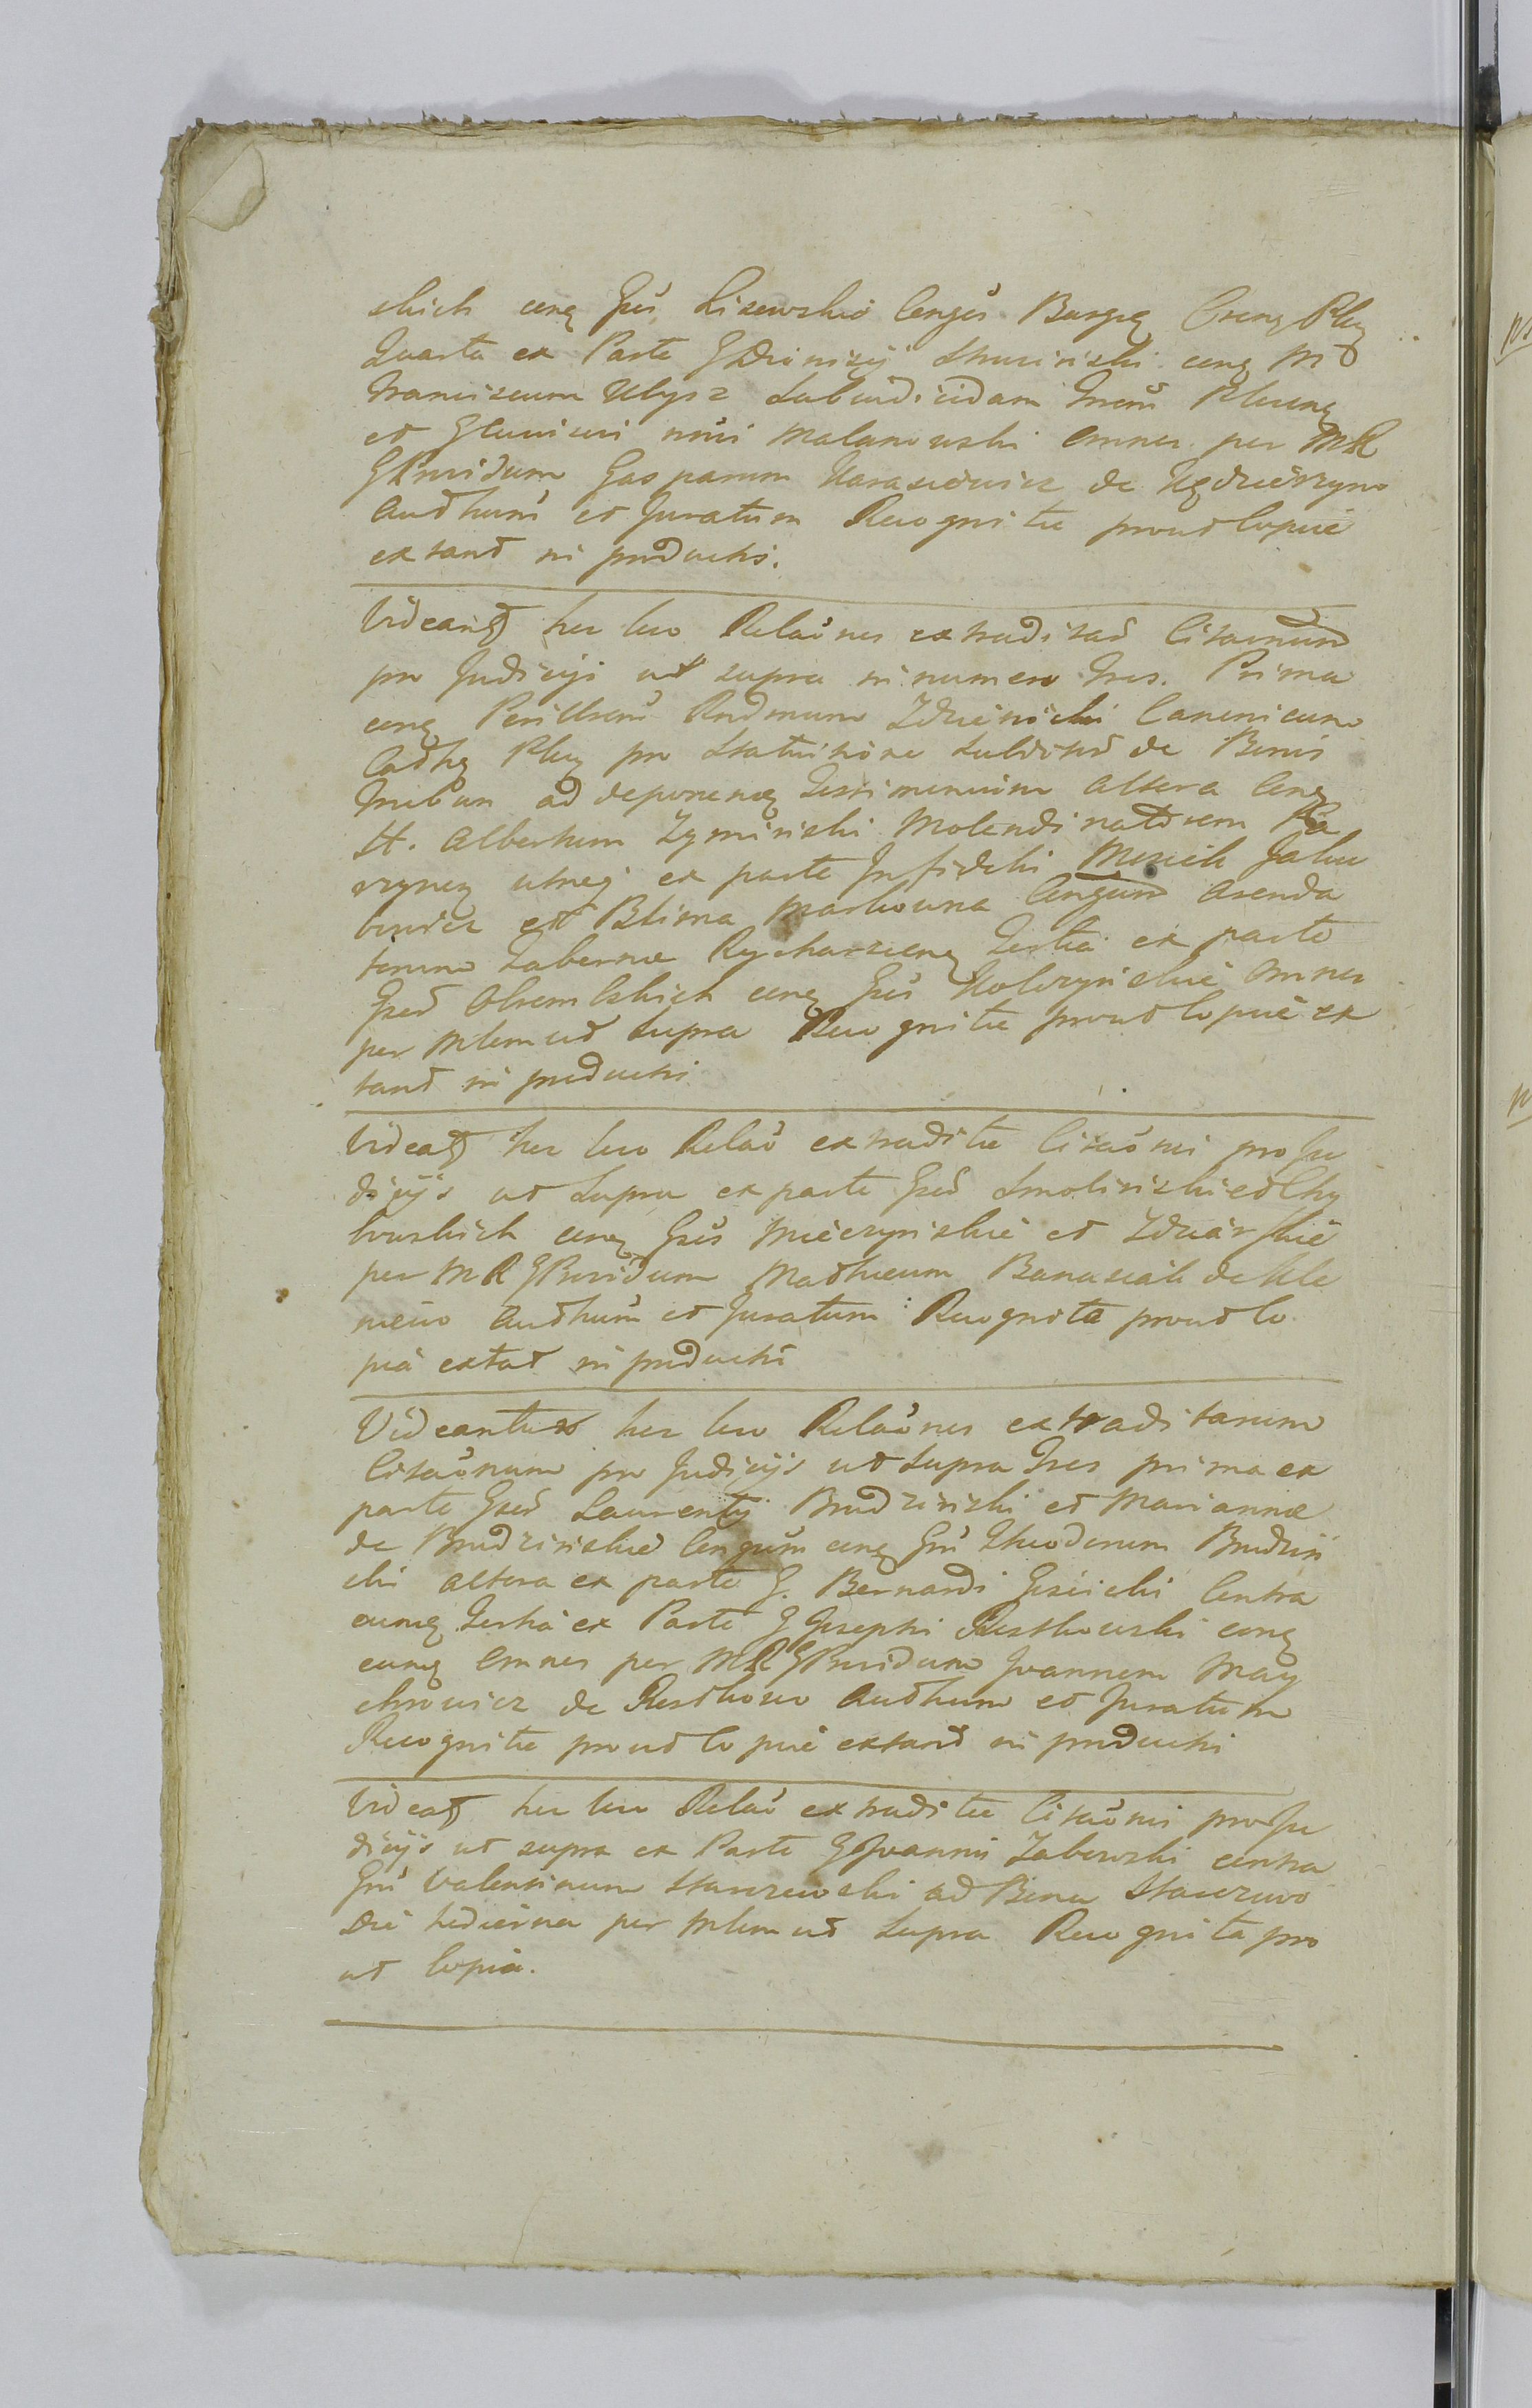 skich cong Gs Lisewskie Conges Burgg Crang Plug
Quarta ex Parte G Dionisij Skucinski cong M
Franciscum Ulysz Subiudicidam Plucens
et Gtuniuri nuni Malanowski omnes per MR
G Providum Gasparum Karasiewicz de
Authum et Juratum Recognitae prout Copiae
extant in productis.
Videant hic loco Relaones extraditar Citaonum
pro Judicijs ut supra in numero Tres. Prima
cong Perillrem Rndmum Zdzienicki Canonicum
Cathg Plug pro Statuitione Subditor de Bonis
ad deponeng Testimonium altera Cong
H. Albertum Zyminski Molendinatorem
ex parte Infidelis Mosiek Jaku
bowicz et Blima Markowna Congum Arenda
torum Tabernae Tertia ex parte
Gsrd cong Gs Kobrzynskie omnes
per Mlem ut Supra Recognitae prout Copiae ex
tant in producti
Videat hic loco Relao extraditae Citaonis pro Ju
dicijs ut Supra ex parte Gsrd Smolinski et Chy
lowskich cong Gss Mieczynskie et Zdziarskie
per MR G Providum Mathaeum Banasiak de Kle
niewo Authum et Juratum Recognita prout Co
pia extat in producti
Videantur hic loco Relaones extraditarum
Citaonum pro Judicijs ut Supra Tres prima ex
parte Gsrd Laurentij Brudzinski et Mariannae
de Brudzinskie Congum cong Gm Theodorum Brudzin
ski altera ex parte G. Bernardi Gosicki Contra
eumq Tertia ex Parte G Josephi Rostkowski cong
eumq omnes per MR G Providum Joannem May
chrowicz de Rostkowo Authum et Juratum
Recognitae prout Copiae extant in producti
Videat hic loco Relao extraditae Citaonis pro Ju
dicijs ut supra ex Parte G Joannis Zaborski contra
Gm Valentinum Staszewski ad Bona Staszewo
Die hodierna per Mlem ut Supra Recognita pro
ut Copia.